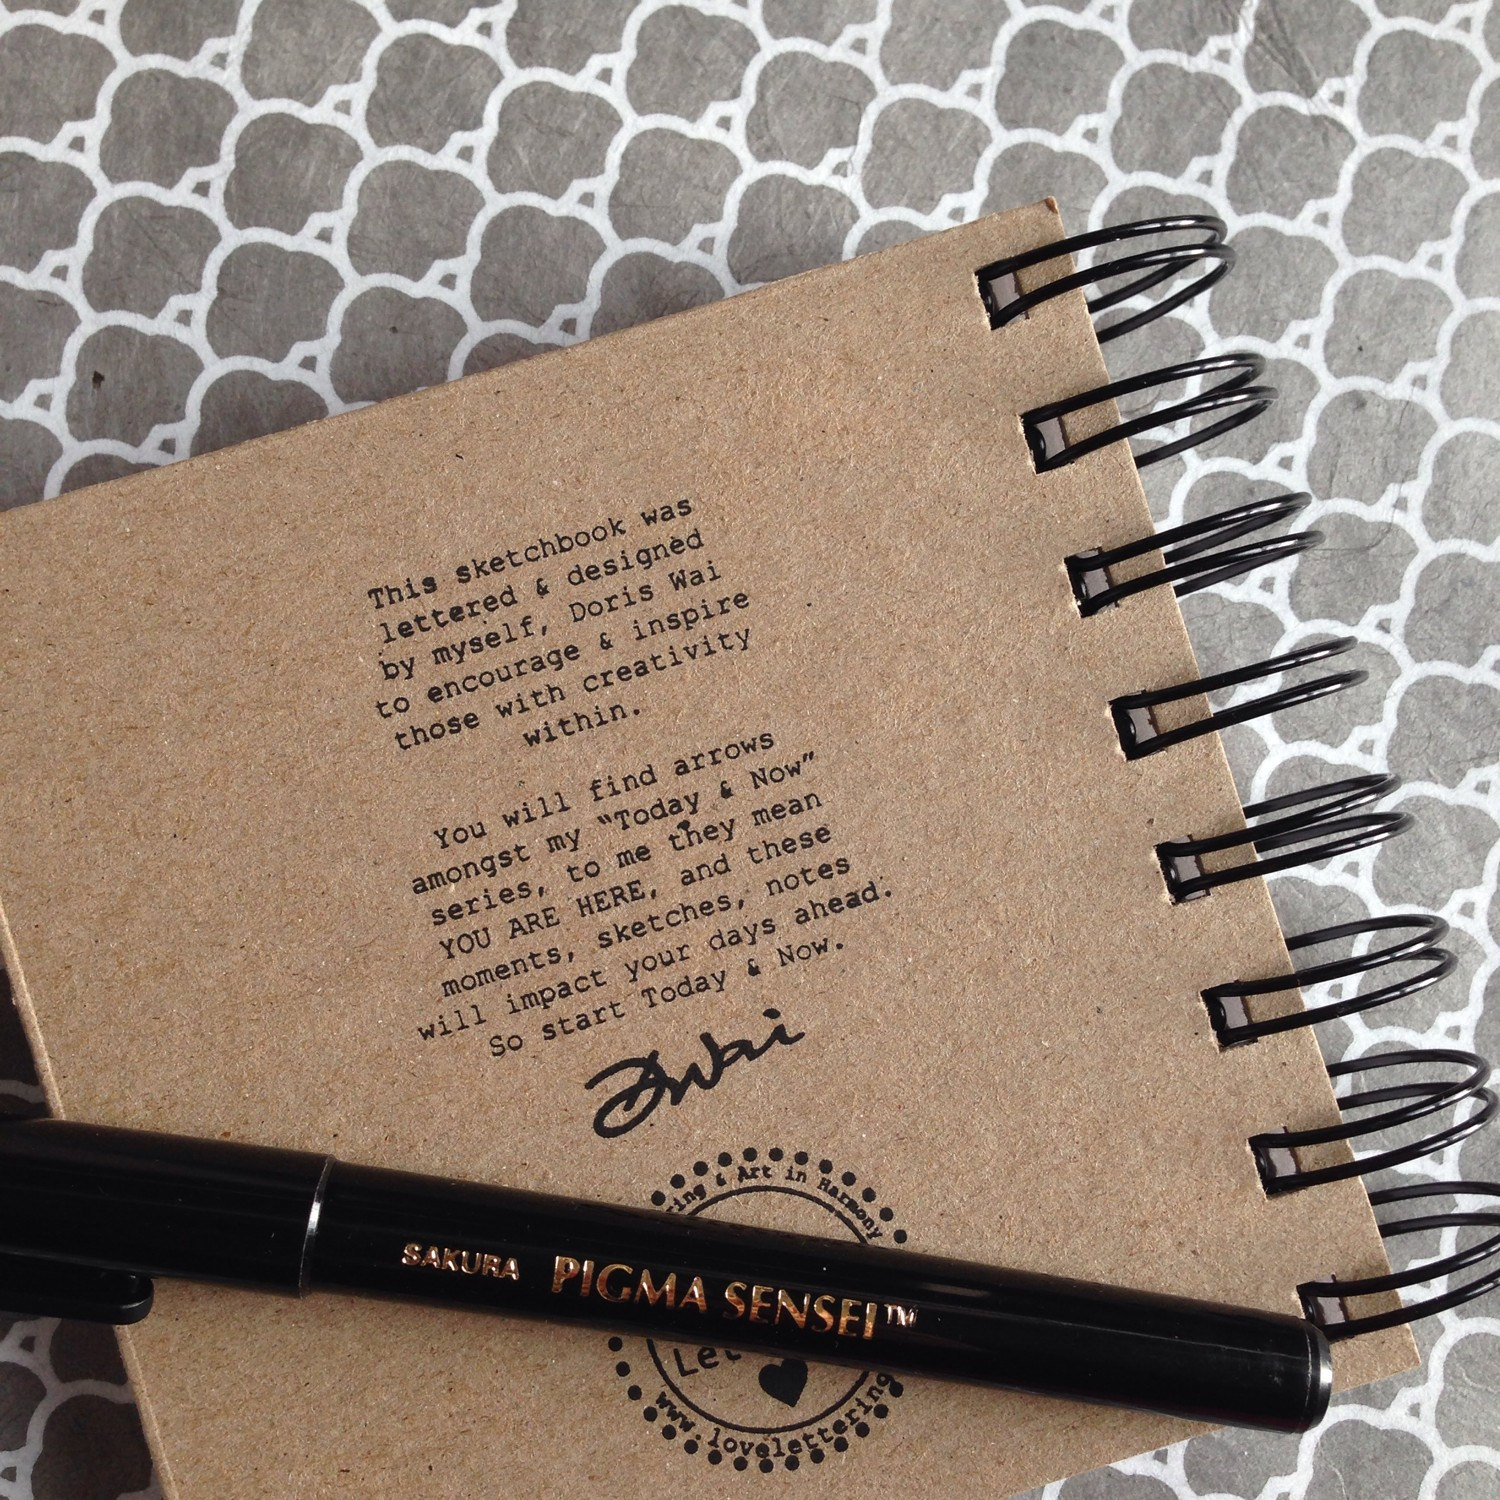 This sketchbook was
lettered & designed
by myself, Doris Wai
to encourage & inspire
those with creativity
within.
You will find arrows
amongst my “Today & Now”
series, to me they mean
YOU ARE HERE, and these
moments, sketches, notes
will impact your days ahead.
So start Today & Now.
DWai
& Art in Harmony
SAKURA PIGMA SENSEI™
www.lovelettering